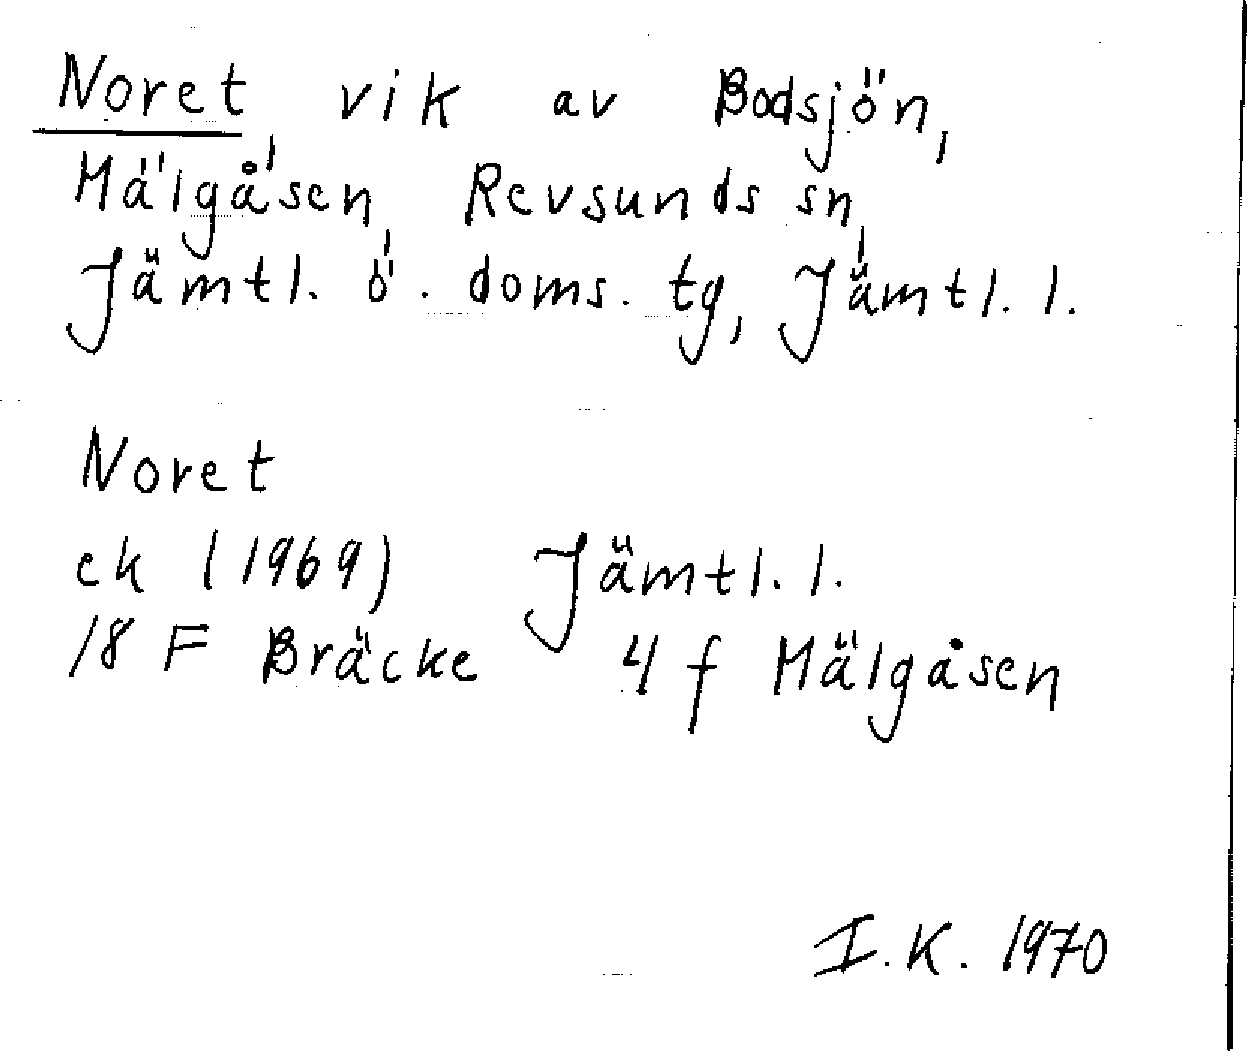 Noret, vik av Bodsjön,
Mälgåsen, Revsunds sn,
Jämtl. ö. doms. tg, Jämtl. l.
Noret
ek (1969) Jämtl. l.
18 F Bräcke 4 f Mälgåsen
I. K. 1970